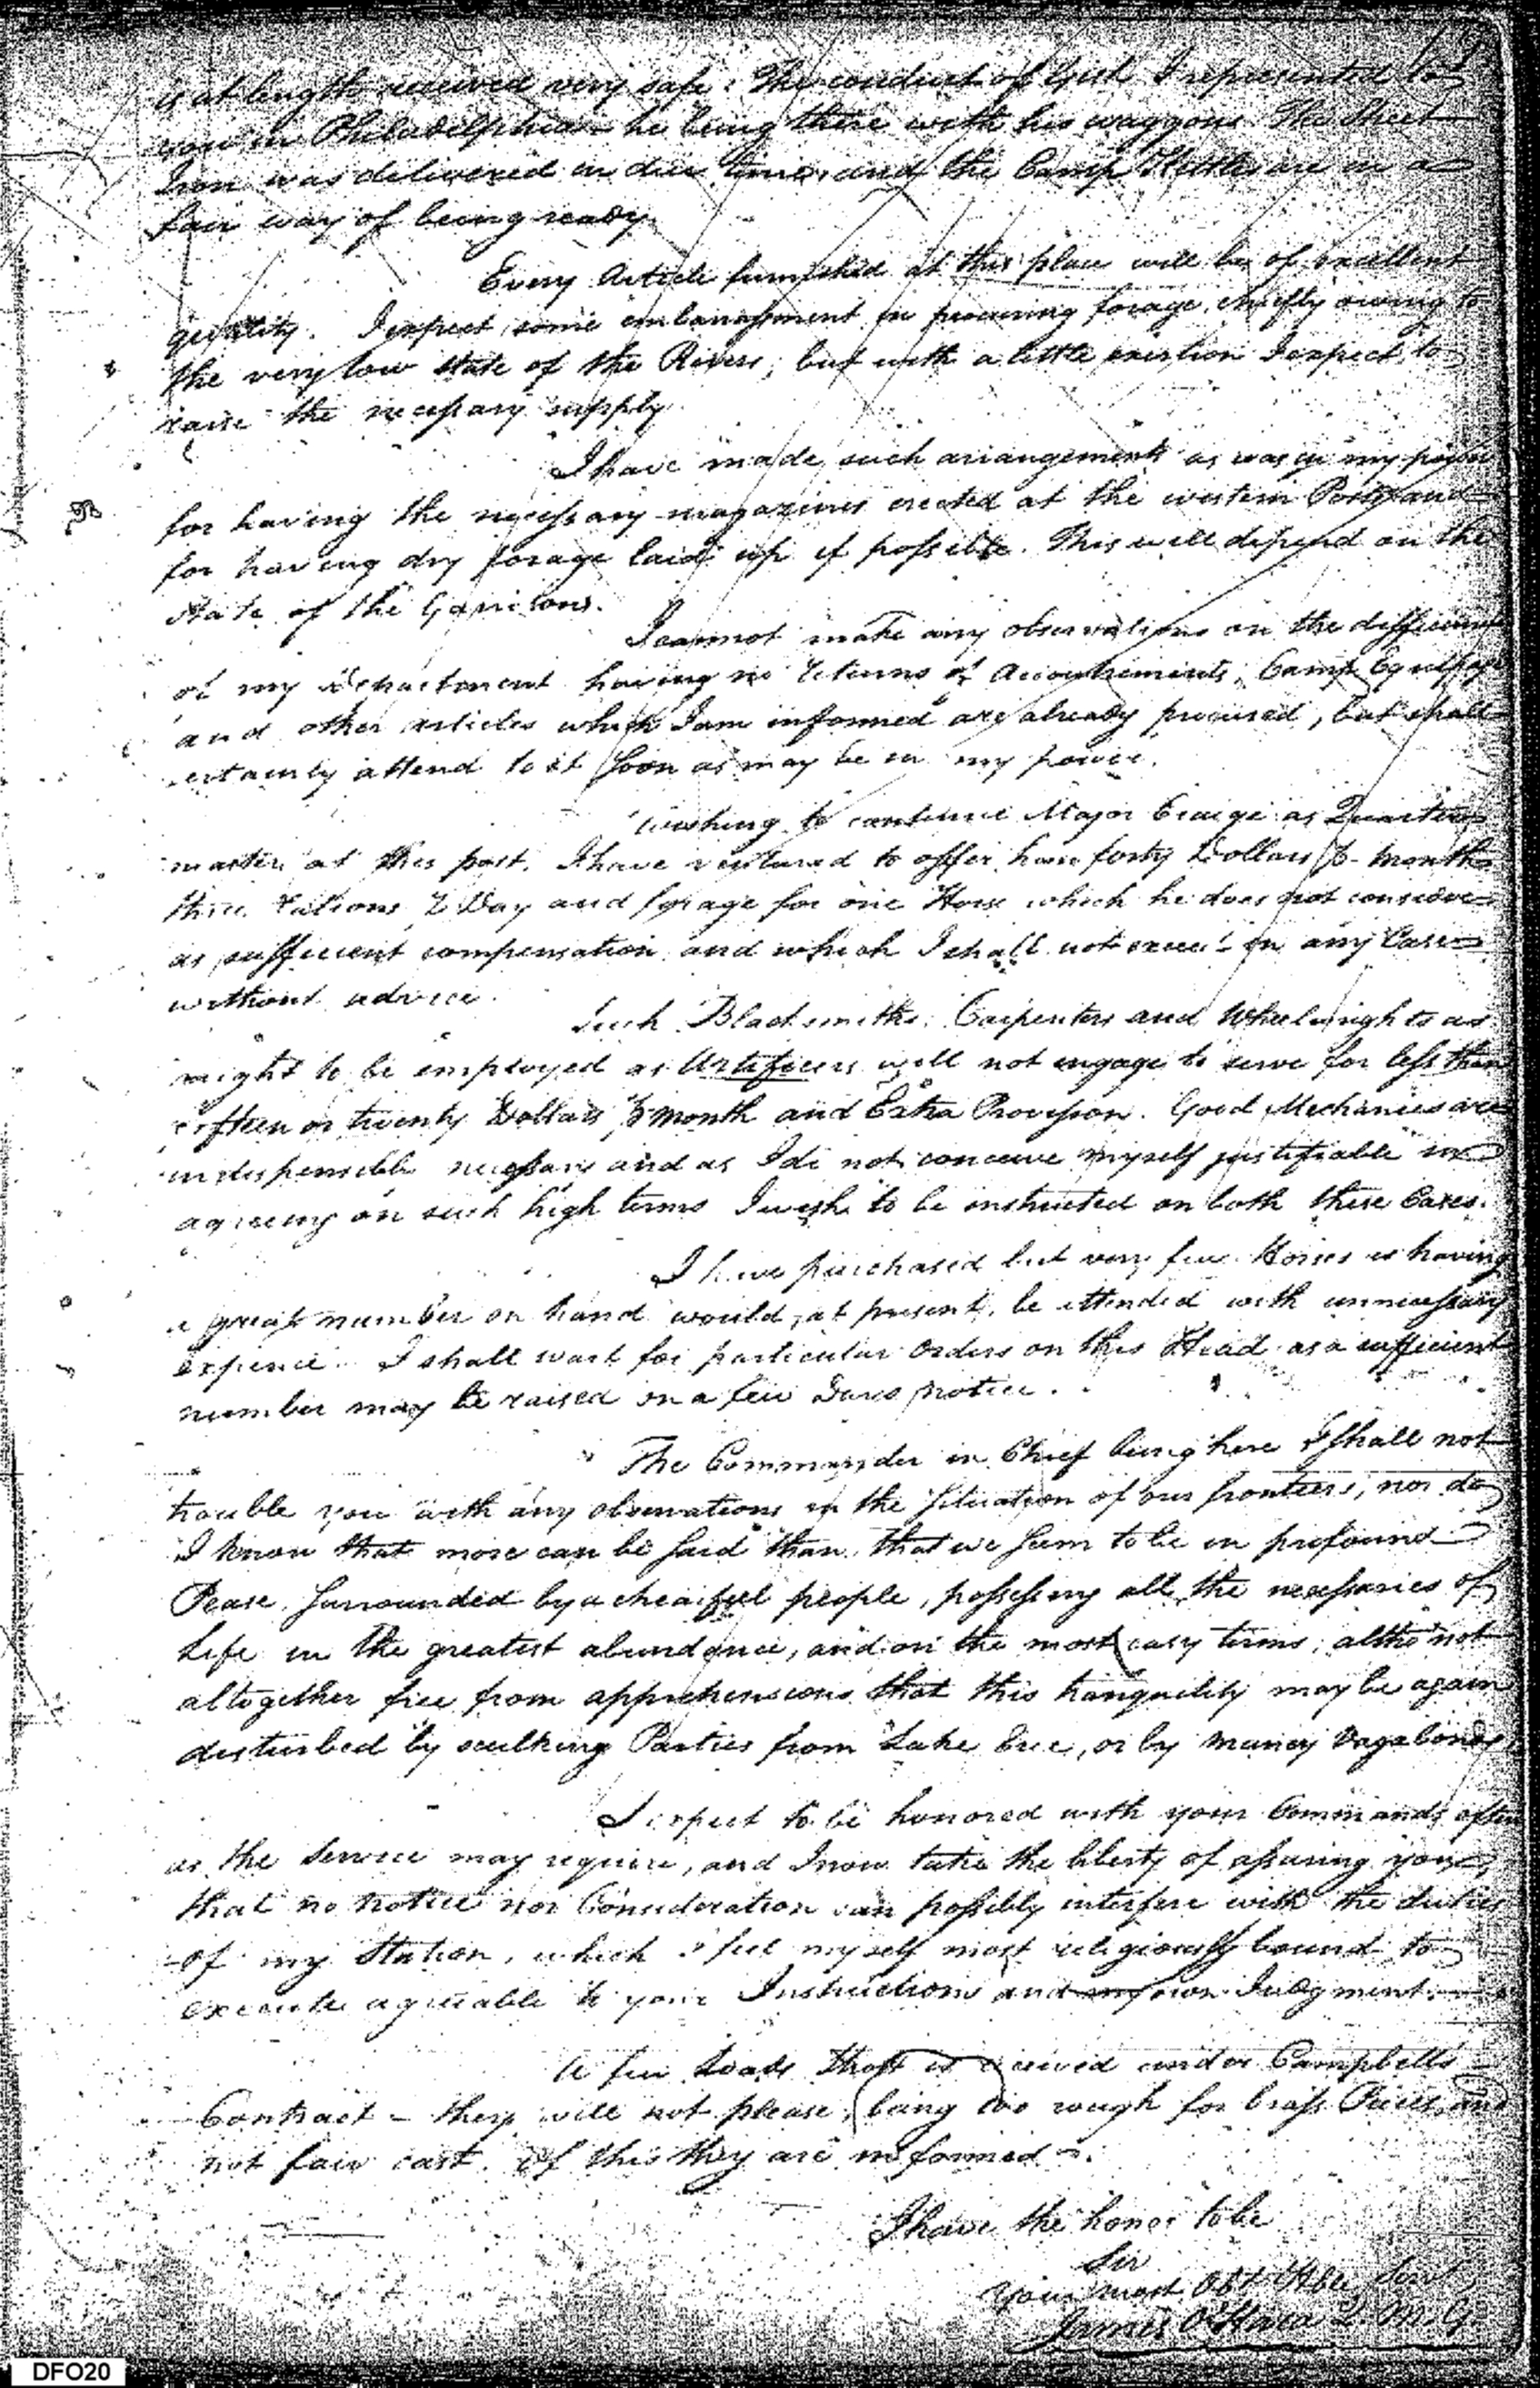 is at length received very safe. The conduct of Gist I represented to
you in Philadelphia he being there with his waggons. The Sheet
Iron was delivered in due time, and the Camp Kettles are in a
fair way of being ready.
Every Article furnished at this place will be of excellent
quality. I expect some embarassment in procuring forage, chiefly owing to
the very low state of the Rivers; but with a little exertion I expect to
raise the necessary supply.
I have made such arrangements as was in my power
for having the necessary magazines erected at the western Posts and
for having dry forage laid up if possible. This will depend on the
state of the Garrisons.
I cannot make any observations on the
of my department having no returns of Accoutrements, Camp Equipage
and other articles which I am informed are already procured, but shall
certainly attend to it soon as may be in my power.
Wishing to continue Major Craige as Quarter
master at this post, I have ventured to offer him forty Dollars ⅌ month
three rations ⅌ Day and forage for one Horse which he does not consider
as sufficient compensation and which I shall not exceed in any Case
without advice.
Such Blacksmiths, Carpenters and Wheelwrights as
ought to be employed as Artificers will not engage to serve for less than
fifteen or twenty Dollars ⅌ month and Extra Provision. Good Mechanics are
indispensible necessary and as I do not conceive myself justifiable in
agreeing on such high terms I wish to be instructed on both these Cases.
I have purchased but very few Horses as having
a great number on hand would, at present, be attended with unnecessary
expence. I shall wait for particular Orders on this Head as a sufficient
number may be raised on a few Days notice.
The Commander in Chief being here I shall not
trouble you with any observations on the situation of our frontiers, nor do
I know that more can be said than that we seem to be in profound
Peace, surrounded by a chearful people, possessing all the necessaries of
Life in the greatest abundance, and on the most easy terms, altho' not
altogether free from apprehensions that this tranquility may be again
disturbed by sculking Parties from Lake Erie, or by Muncy Vagabonds
I expect to be honored with your Commands often
as the Service may require, and I now take the liberty of assuring you
that no notice nor Consideration can possibly interfere with the duties
of my Station, which I feel myself most religiously bound to
execute agreeable to your Instructions and my own Judgment.
A few Loads Shott is received under Campbells
Contract - they will not please, being too rough for brass Pieces, and
not fair cast. Of this they are informed.
I have the honor to be
Sir
Your most Obt Hble Servt
James O'Hara Q. M. G.
DFO20